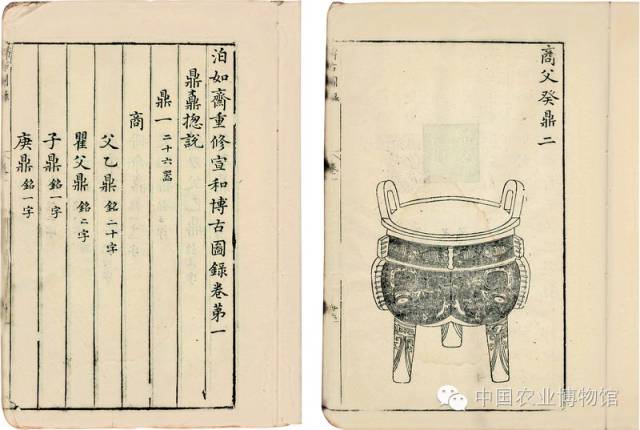 泊如齋重修宣和博古圖錄卷第一
鼎鼐揔說
鼎一 二十六器
商
父乙鼎 銘二十字
瞿父鼎 銘二字
子鼎 銘一字
庚鼎 銘一字
商父癸鼎二
中国农业博物馆